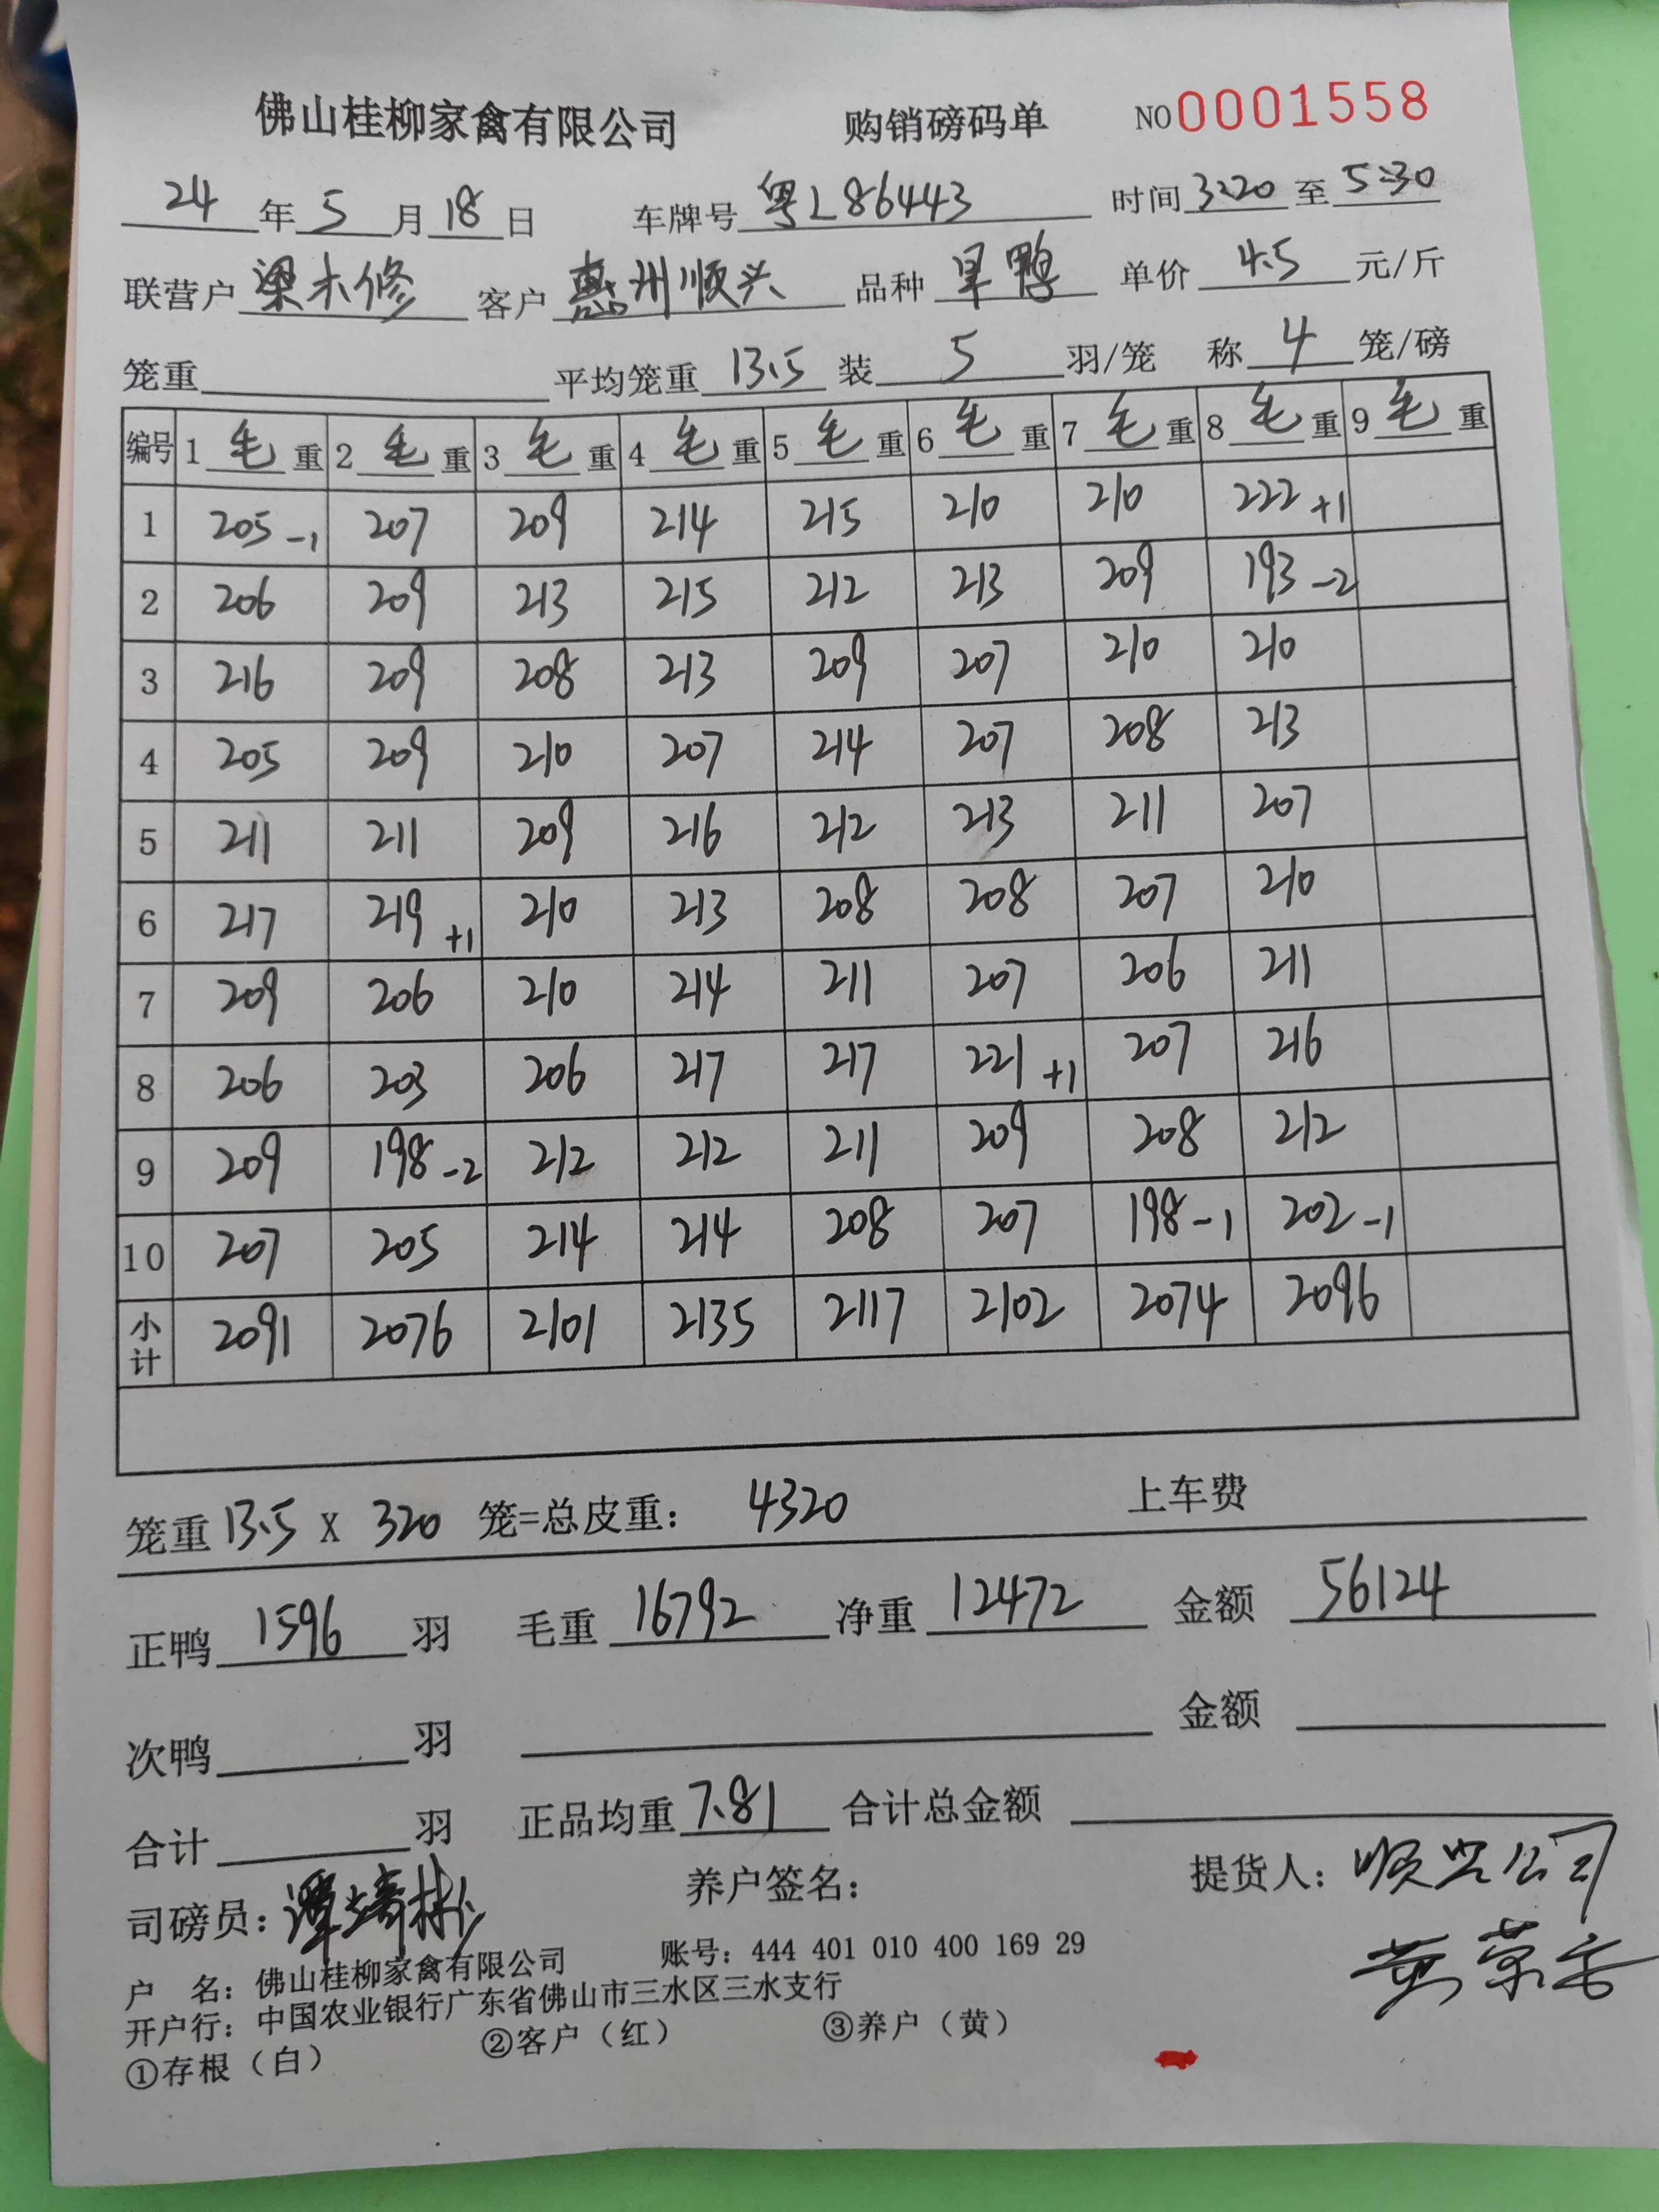 佛山桂柳家禽有限公司 购销磅码单 NO 0001558
24 年 5 月 18 日 车牌号 粤L86443 时间 3:20 至 5:30
联营户 梁木修 客户 惠州顺兴 品种 旱鸭 单价 4.5 元/斤
笼重 平均笼重 13.5 装 5 羽/笼 称 4 笼/磅
编号 1 毛 重 2 毛 重 3 毛 重 4 毛 重 5 毛 重 6 毛 重 7 毛 重 8 毛 重 9 毛 重
1 205 -1 207 209 214 215 210 210 222 +1
2 206 209 213 215 212 213 209 193 -2
3 216 209 208 213 209 207 210 210
4 205 209 210 207 214 207 208 213
5 211 211 209 216 212 213 211 207
6 217 219 +1 210 213 208 208 207 210
7 209 206 210 214 211 207 206 211
8 206 203 206 217 217 221 +1 207 216
9 209 198 -2 212 212 211 209 208 212
10 207 205 214 214 208 207 198 -1 202 -1
小计 2091 2076 2101 2135 2117 2102 2074 2096
笼重 13.5 X 320 笼=总皮重: 4320 上车费
正鸭 1596 羽 毛重 16792 净重 12472 金额 56124
次鸭 羽 金额
合计 羽 正品均重 7.81 合计总金额
司磅员: 养户签名: 提货人: 顺兴公司
户 名: 佛山桂柳家禽有限公司 账号: 444 401 010 400 169 29
开户行: 中国农业银行广东省佛山市三水区三水支行
①存根（白） ②客户（红） ③养户（黄）